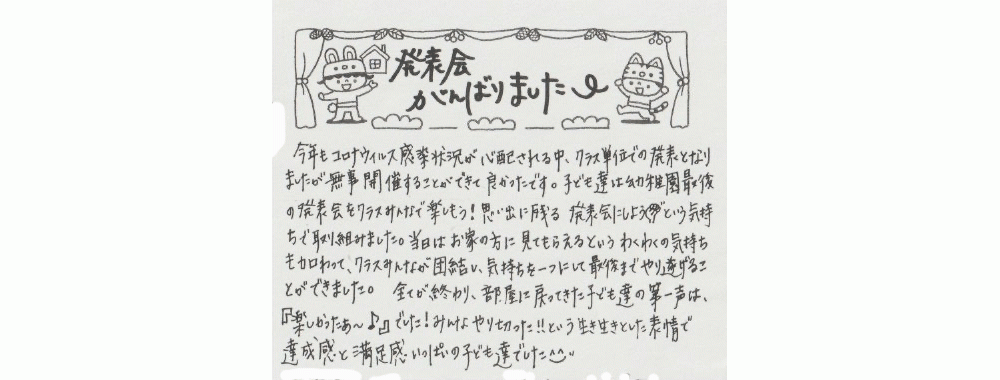 発表会
がんばりました
今年もコロナウィルス感染状況が心配される中、クラス単位での発表となり
ましたが無事開催することができて良かったです。子ども達は幼稚園最後
の発表会をクラスみんなで楽しもう!思い出に残る発表会にしよう!!という気持
ちで取り組みました。当日はお家の方に見てもらえるというわくわくの気持ち
も加わって、クラスみんなが団結し、気持ちを一つにして最後までやり遂げるこ
とができました。 全てが終わり、部屋に戻ってきた子ども達の第一声は、
『楽しかったあ〜♪』でした!みんなやり切った!!という生き生きとした表情で
達成感と満足感いっぱいの子ども達でした^^